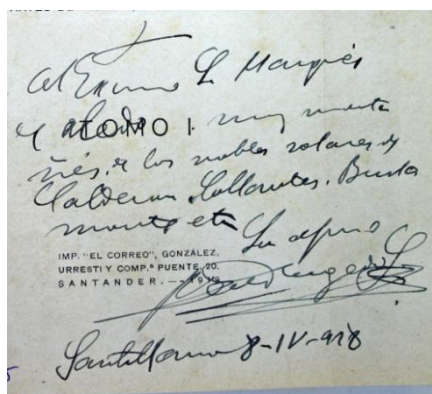 al Excmo Sr Marqués
de
TOMO I. muy monta
ñés, de los nobles solares de
Calderon, Collantes, Busta
mante etc Su afmo
IMP. "EL CORREO", GONZÁLEZ,
URRESTI Y COMP.ª PUENTE, 20.
SANTANDER.
Santillana 8-IV-918